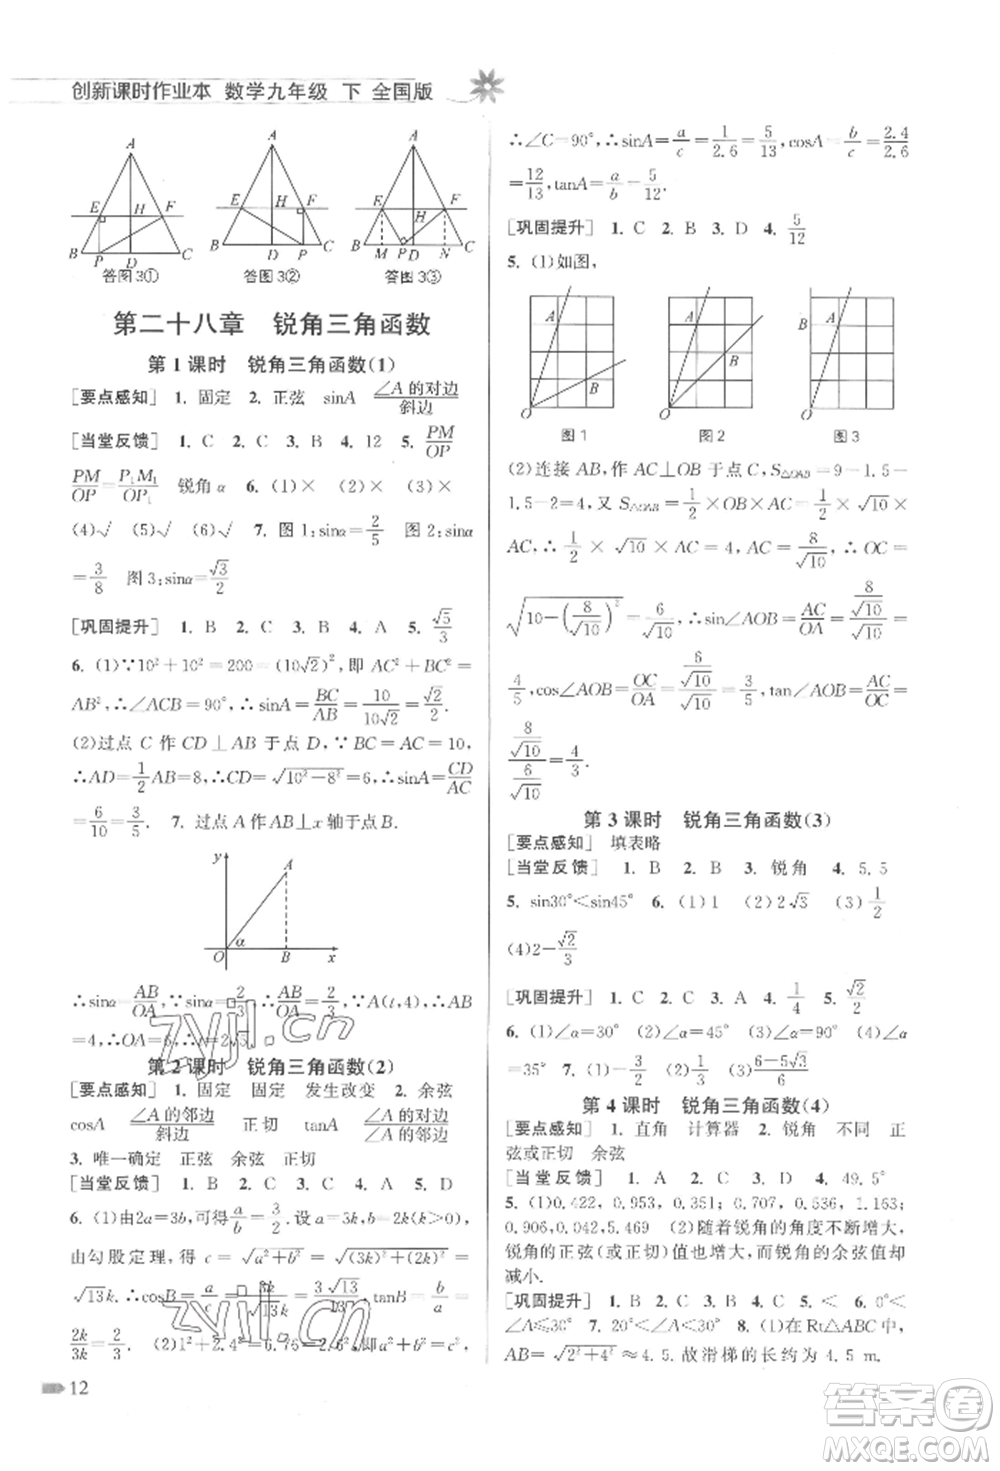 创新课时作业本 数学九年级 下 全国版
A E H F B P D C
答图3①
A E H F B D P C
答图3②
A E H F B M P D N C
答图3③
第二十八章 锐角三角函数
第1课时 锐角三角函数(1)
[要点感知] 1. 固定 2. 正弦 sinA ∠A的对边/斜边
[当堂反馈] 1. C 2. C 3. B 4. 12 5. PM/OP
PM/OP=P₁M₁/OP₁ 锐角α 6. (1)× (2)× (3)×
(4)√ (5)√ (6)√ 7. 图1:sinα=2/5 图2:sinα
=3/8 图3:sinα=√3/2
[巩固提升] 1. B 2. B 3. B 4. A 5. √5/3
6. (1)∵10²+10²=200=(10√2)²,即 AC²+BC²=
AB²,∴∠C=90°,∴sinA=BC/AB=10/10√2=√2/2.
(2)过点 C 作 CD⊥AB 于点 D,∵BC=AC=10,
∴AD=1/2AB=8,∴CD=√(10²-8²)=6,∴sinA=CD/AC=
6/10=3/5. 7. 过点A作AB⊥x轴于点B.
y A α O B x
∴sinα=AB/OA,∵sinα=2/3,∴AB/OA=2/3,∵A(t,4),∴AB
=4,∴OA=6,∴t=2√5.
第2课时 锐角三角函数(2)
[要点感知] 1. 固定 固定 发生改变 2. 余弦
cosA ∠A的邻边/斜边 正切 tanA ∠A的对边/∠A的邻边
3. 唯一确定 正弦 余弦 正切
[当堂反馈] 1. B 2. C 3. C 4. A 5. D
6. (1)由2a=3b,可得a/b=3/2.设a=3k,b=2k(k>0),
由勾股定理,得 c=√(a²+b²)=√((3k)²+(2k)²)=
√13k.∴cosB=a/c=3k/√13k=3√13/13,tanB=b/a=
2k/3k=2/3. (2)1²+2.4²=6.76=2.6²,即a²+b²=c²,
12
∴∠C=90°,∴sinA=a/c=1/2.6=5/13,cosA=b/c=2.4/2.6
=12/13,tanA=a/b=5/12.
[巩固提升] 1. C 2. B 3. D 4. 5/12
5. (1)如图,
A B O
图1
A B O
图2
B A O
图3
(2)连接 AB,作 AC⊥OB于点 C,S△OAB=9-1.5-
1.5-2=4,又 S△OAB=1/2×OB×AC=1/2×√10×
AC,∴1/2×√10×AC=4,AC=8/√10,∴OC=
√(10-(8/√10)²)=6/√10,∴sin∠AOB=AC/OA=(8/√10)/√10=
4/5,cos∠AOB=OC/OA=(6/√10)/√10=3/5,tan∠AOB=AC/OC=
(8/√10)/(6/√10)=4/3.
第3课时 锐角三角函数(3)
[要点感知] 填表略
[当堂反馈] 1. B 2. B 3. 锐角 4. 5,5
5. sin30°<sin45° 6. (1)1 (2)2√3 (3)1/2
(4)2-√2/3
[巩固提升] 1. C 2. C 3. A 4. 1/4 5. √2/2
6. (1)∠α=30° (2)∠α=45° (3)∠α=90° (4)∠α
=35° 7. (1)∠A=60° (2)(6-5√3)/6
第4课时 锐角三角函数(4)
[要点感知] 1. 直角 计算器 2. 锐角 不同 正
弦或正切 余弦
[当堂反馈] 1. A 2. C 3. A 4. 49.5°
5. (1)0.422,0.953,0.351;0.707,0.636,1.163;
0.906,0.042,5.469 (2)随着锐角的角度不断增大,
锐角的正弦(或正切)值也增大,而锐角的余弦值却
减小.
[巩固提升] 1. C 2. B 3. C 4. C 5. < 6. 0°<
∠A≤30° 7. 20°<∠A<30° 8. (1)在Rt△ABC中
AC=√(2²+4²)≈4.5. 故滑梯的长约为 4.5 m.
zyjl.cn
zyjl.cn
答案圈
MXQE.COM